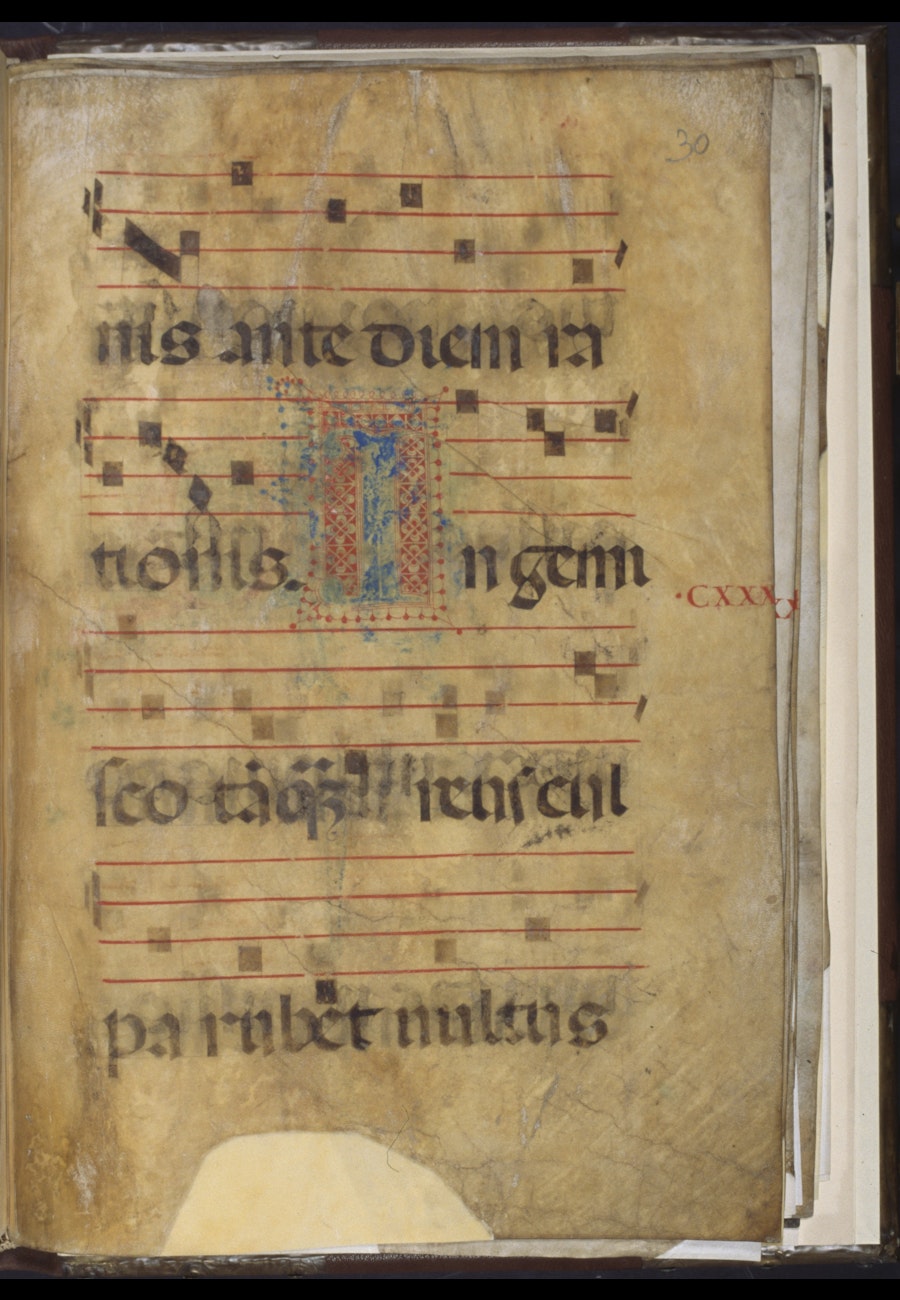 30
nis ante diem ra
tionis. In gemi
·CXXX
sco tāq̄ʒ reus cul
pa rubet uultus